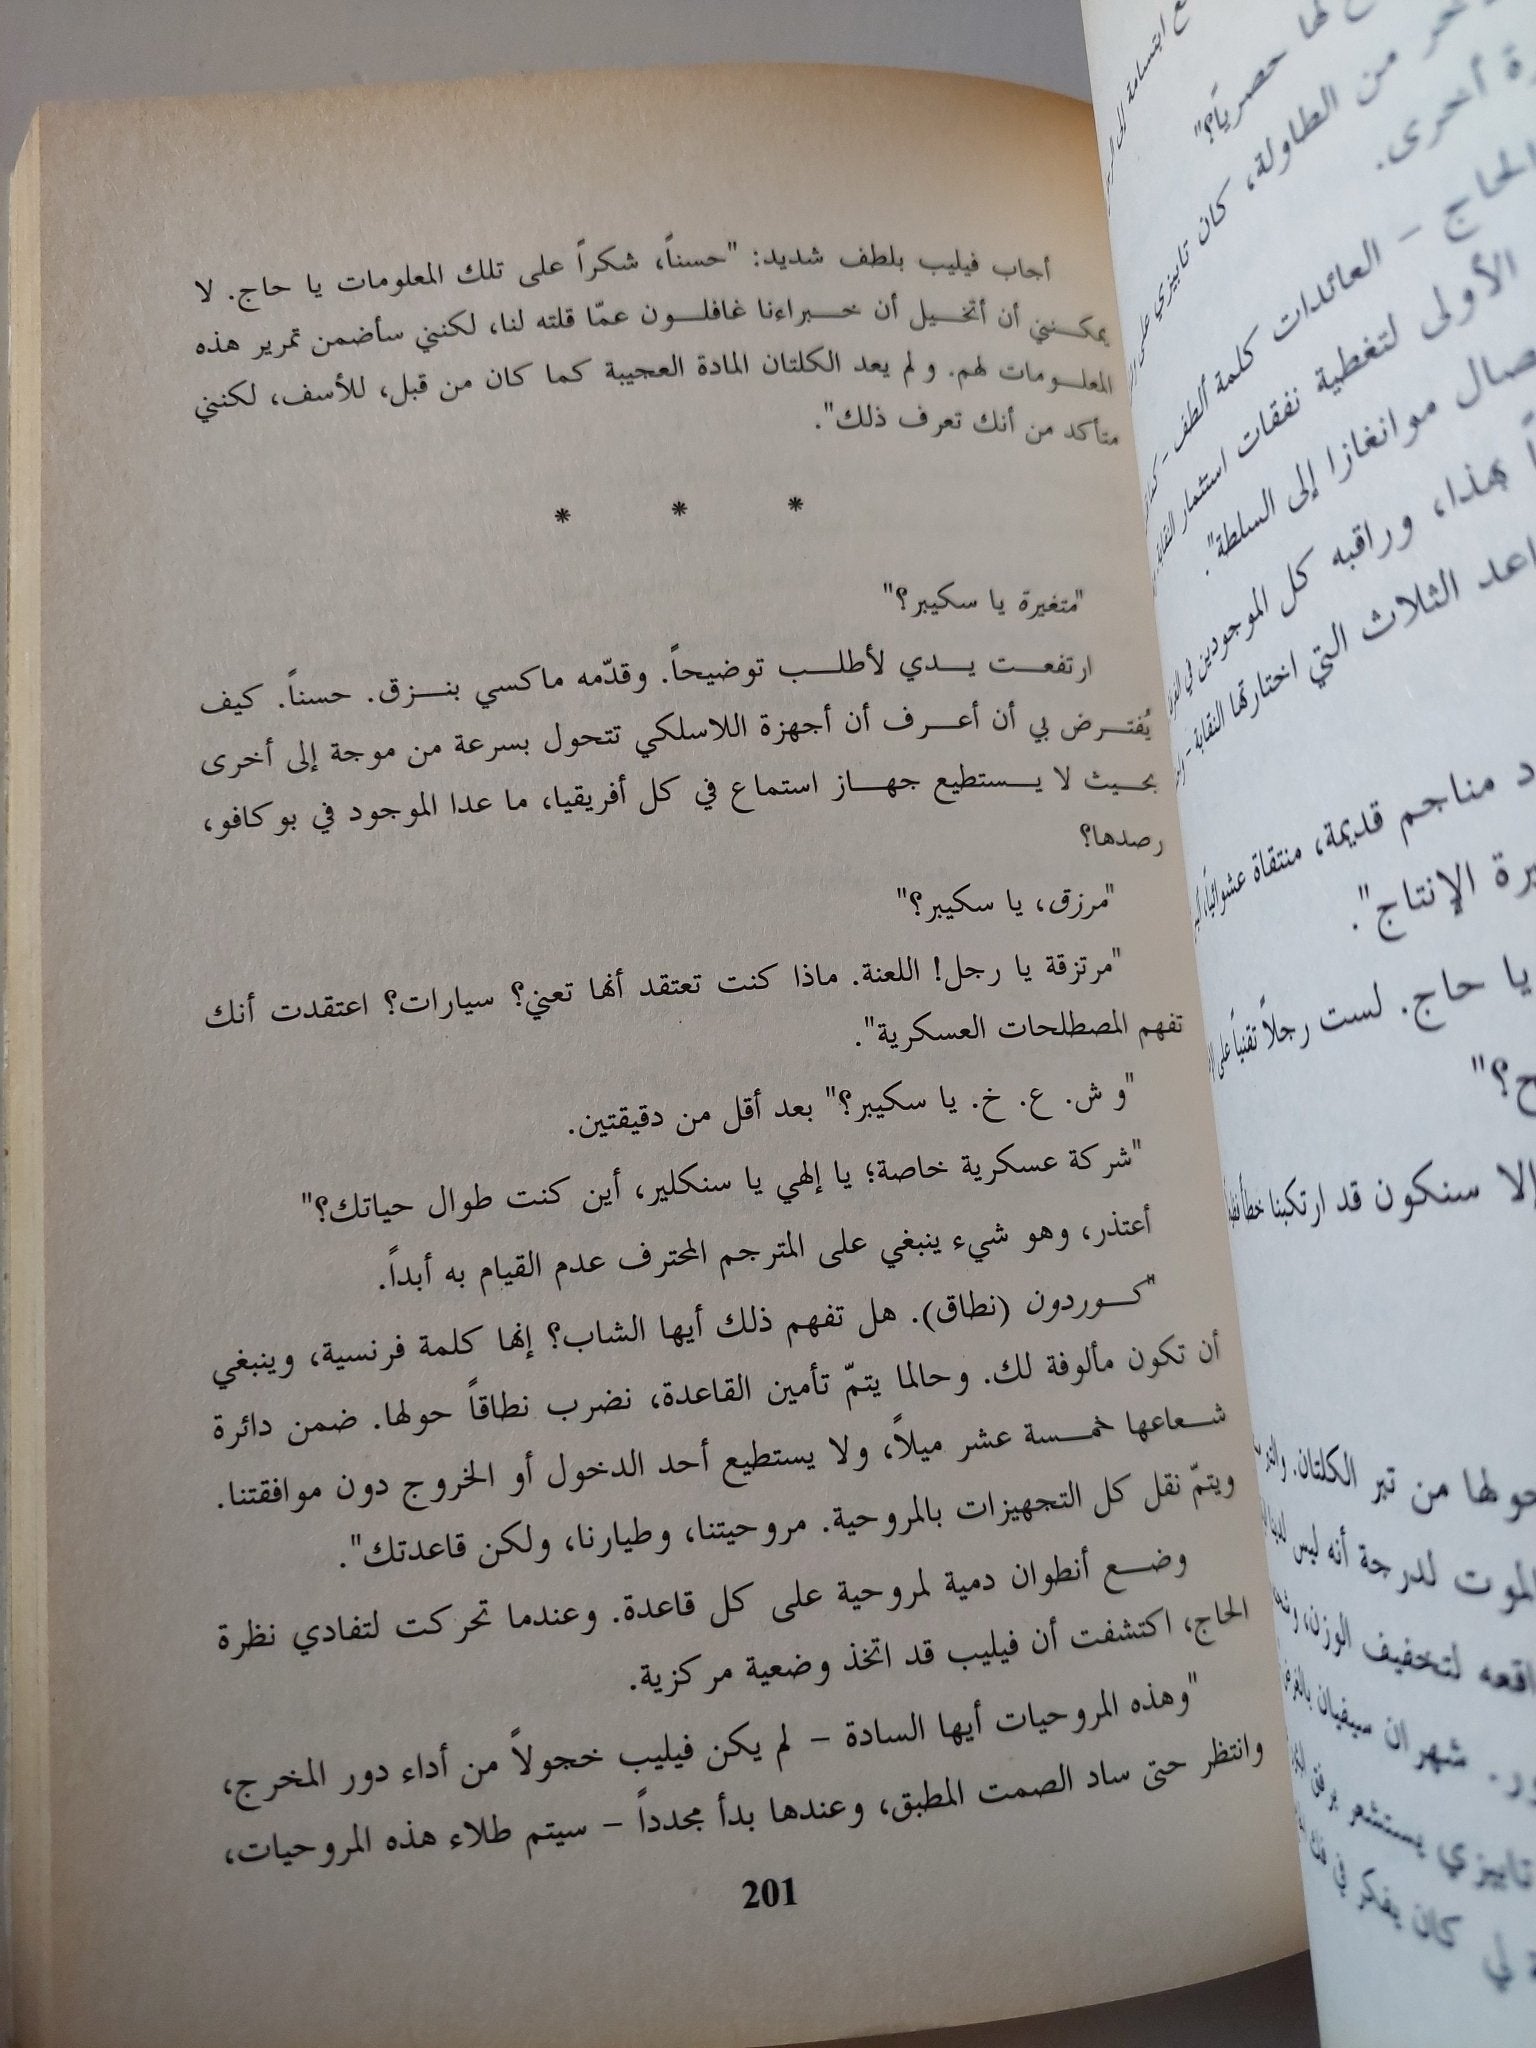 أجاب فيليب بلطف شديد: "حسناً، شكراً على تلك المعلومات يا حاج. لا
يمكنني أن أتخيل أن خبراءنا غافلون عمّا قلته لنا، لكنني سأضمن تمرير هذه
المعلومات لهم. و لم يعد الكلتان المادة العجيبة كما كان من قبل، للأسف، لكنني
متأكد من أنك تعرف ذلك".
* * *
"متغيرة يا سكيبر؟"
ارتفعت يدي لأطلب توضيحاً. وقدّمه ماكسي بنزق. حسناً. كيف
يُفترض بي أن أعرف أن أجهزة اللاسلكي تتحول بسرعة من موجة إلى أخرى
بحيث لا يستطيع جهاز استماع في كل أفريقيا، ما عدا الموجود في بوكافو،
رصدها؟
"مرزق، يا سكيبر؟"
"مرتزقة يا رجل! اللعنة. ماذا كنت تعتقد أنها تعني؟ سيارات؟ اعتقدت أنك
تفهم المصطلحات العسكرية".
"و ش. ع. خ. يا سكيبر؟" بعد أقل من دقيقتين.
"شركة عسكرية خاصة؛ يا إلهي يا سنكلير، أين كنت طوال حياتك؟"
أعتذر، وهو شيء ينبغي على المترجم المحترف عدم القيام به أبداً.
"كوردون (نطاق). هل تفهم ذلك أيها الشاب؟ إنها كلمة فرنسية، وينبغي
أن تكون مألوفة لك. وحالما يتمّ تأمين القاعدة، نضرب نطاقاً حولها. ضمن دائرة
شعاعها خمسة عشر ميلاً، ولا يستطيع أحد الدخول أو الخروج دون موافقتنا.
ويتمّ نقل كل التجهيزات بالمروحية. مروحيتنا، وطيارنا، ولكن قاعدتك".
وضع أنطوان دمية لمروحية على كل قاعدة. وعندما تحركت لتفادي نظرة
الحاج، اكتشفت أن فيليب قد اتخذ وضعية مركزية.
"وهذه المروحيات أيها السادة – لم يكن فيليب خجولاً من أداء دور المخرج،
وانتظر حتى ساد الصمت المطبق، وعندها بدأ مجدداً – سيتم طلاء هذه المروحيات،
201
ابتسامة إلى
لها حصرياً؟"
من الطاولة، كان تابيزي على
أخرى.
الحاج – العائدات كلمة ألطف –
الأولى لتغطية نفقات استثمار النقابة
موانغازا إلى السلطة".
هذا، وراقبه كل الموجودين في
الثلاث التي اختارتها النقابة –
مناجم قديمة، منتقاة عشوائياً،
الإنتاج".
يا حاج. لست رجلاً تقنياً على
إلا سنكون قد ارتكبنا خطأ
حولها من تبر الكلتان.
الموت لدرجة أنه ليس
لتخفيف الوزن،
شهران سيفيان
تابيزي يستشعر
لي كان يفكر في